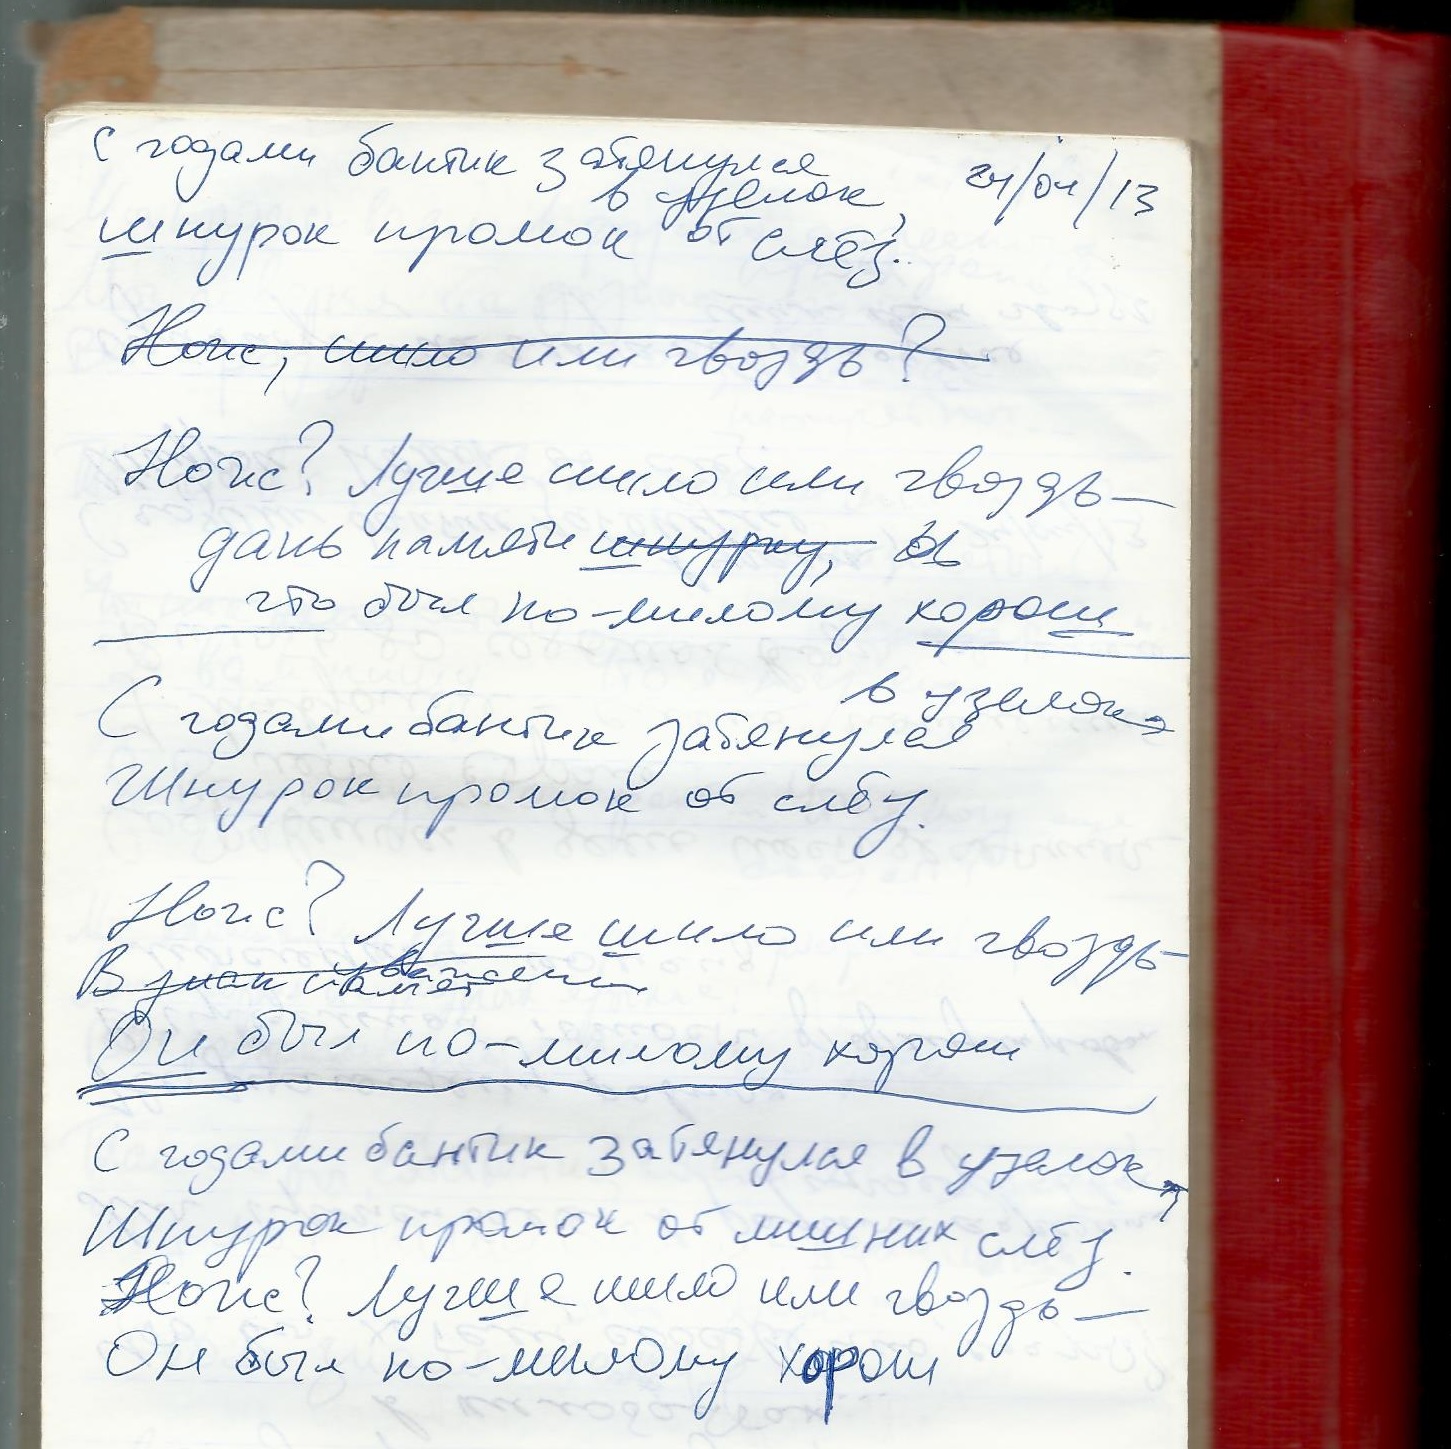 С годами бантик затянулся
в узелок,
24/04/13
шнурок промок от слёз.
Нож, шило или гвоздь?
Нож? Лучше шило или гвоздь—
дань памяти шнурку,
что был по-милому хорош
в узелок,
С годами бантик затянулся
Шнурок промок от слёз.
Нож? Лучше шило или гвоздь—
В знак
Он был по-милому хорош
С годами бантик затянулся в узелок,
Шнурок промок от лишних слёз.
Нож? Лучше шило или гвоздь—
Он был по-милому хорош